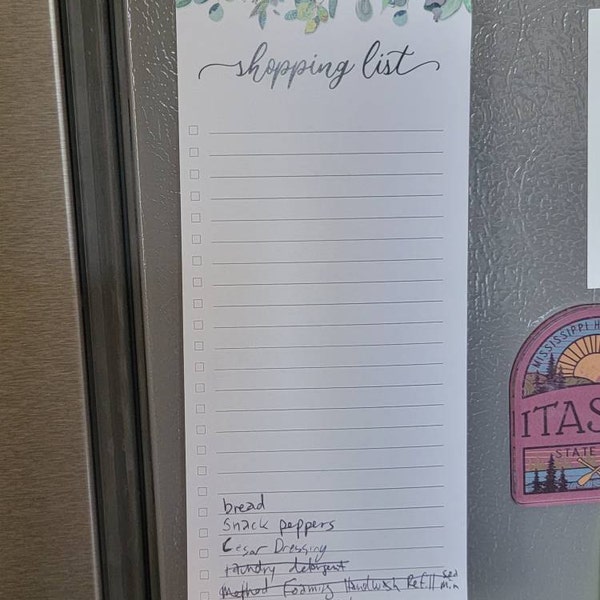 shopping list
bread
Snack peppers
Cesar Dressing
laundry detergent
Method Foaming Handwash Refill sea min
MISSISSIPPI H
ITAS
STATE